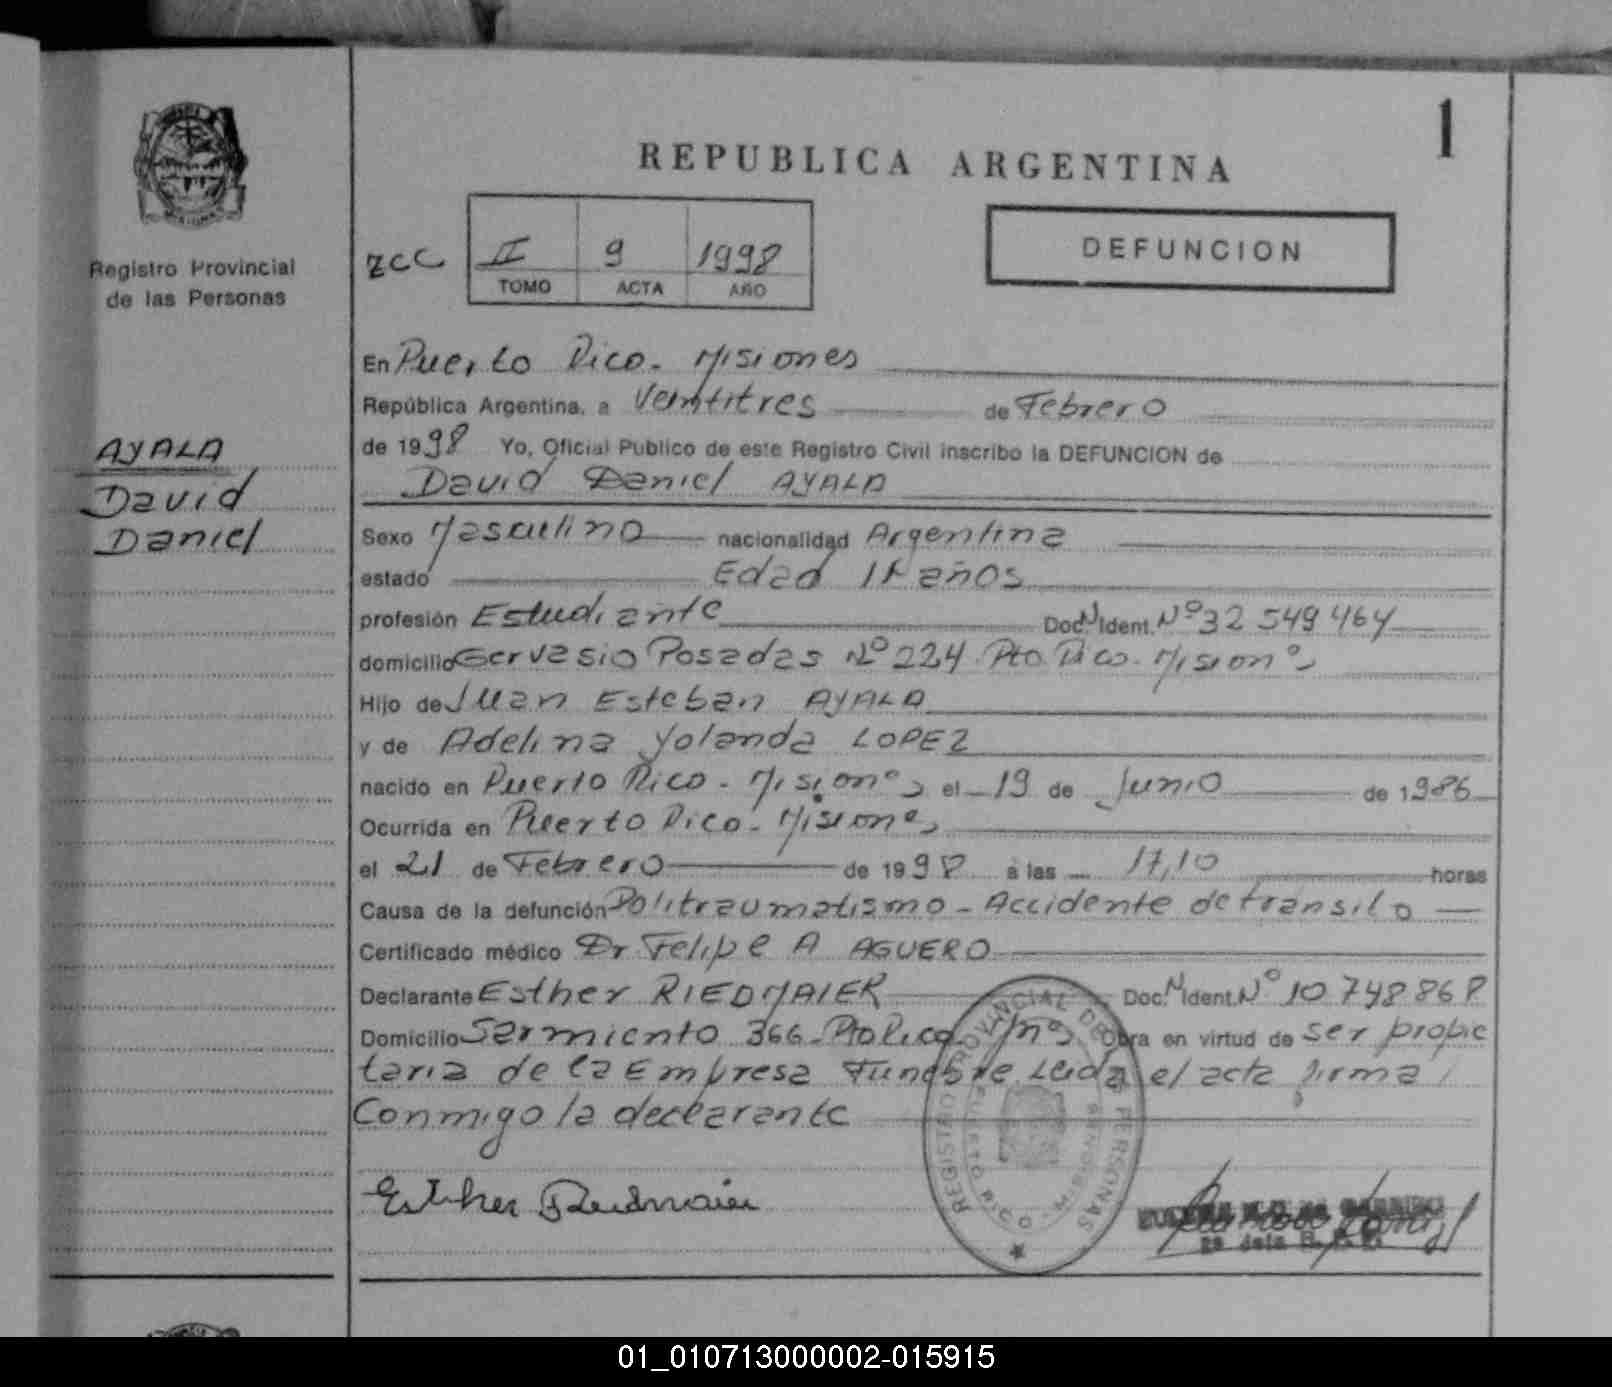 1
REPUBLICA ARGENTINA
Registro Provincial
de las Personas
ZCC II 9 1998
TOMO ACTA AÑO
DEFUNCION
AYALA
David
Daniel
En Puerto Rico - Misiones
República Argentina, a Veintitres de Febrero
de 1998 Yo, Oficial Publico de este Registro Civil inscribo la DEFUNCION de
David Daniel AYALA
Sexo Masculino nacionalidad Argentina
estado Edad 11 años
profesión Estudiante Doc. N Ident. Nº 32 549 464
domicilio Gervasio Posadas Nº 224 Pto Rico - Misiones
Hijo de Juan Esteban AYALA
y de Adelina Yolanda LOPEZ
nacido en Puerto Rico - Misiones el 19 de Junio de 1986
Ocurrida en Puerto Rico - Misiones
el 21 de Febrero de 1998 a las 17,10 horas
Causa de la defunción Politraumatismo - Accidente de transito
Certificado médico Dr Felipe A AGUERO
Declarante Esther RIEDMAIER Doc. N Ident. Nº 10 748 868
Domicilio Sarmiento 366 - Pto Rico Mnes Obra en virtud de ser propie
taria de la Empresa Funebre Leida el acta firma
Conmigo la declarante
REGISTRO PROVINCIAL DE LAS PERSONAS
PUERTO RICO
Esther Riedmaier
01_010713000002-015915